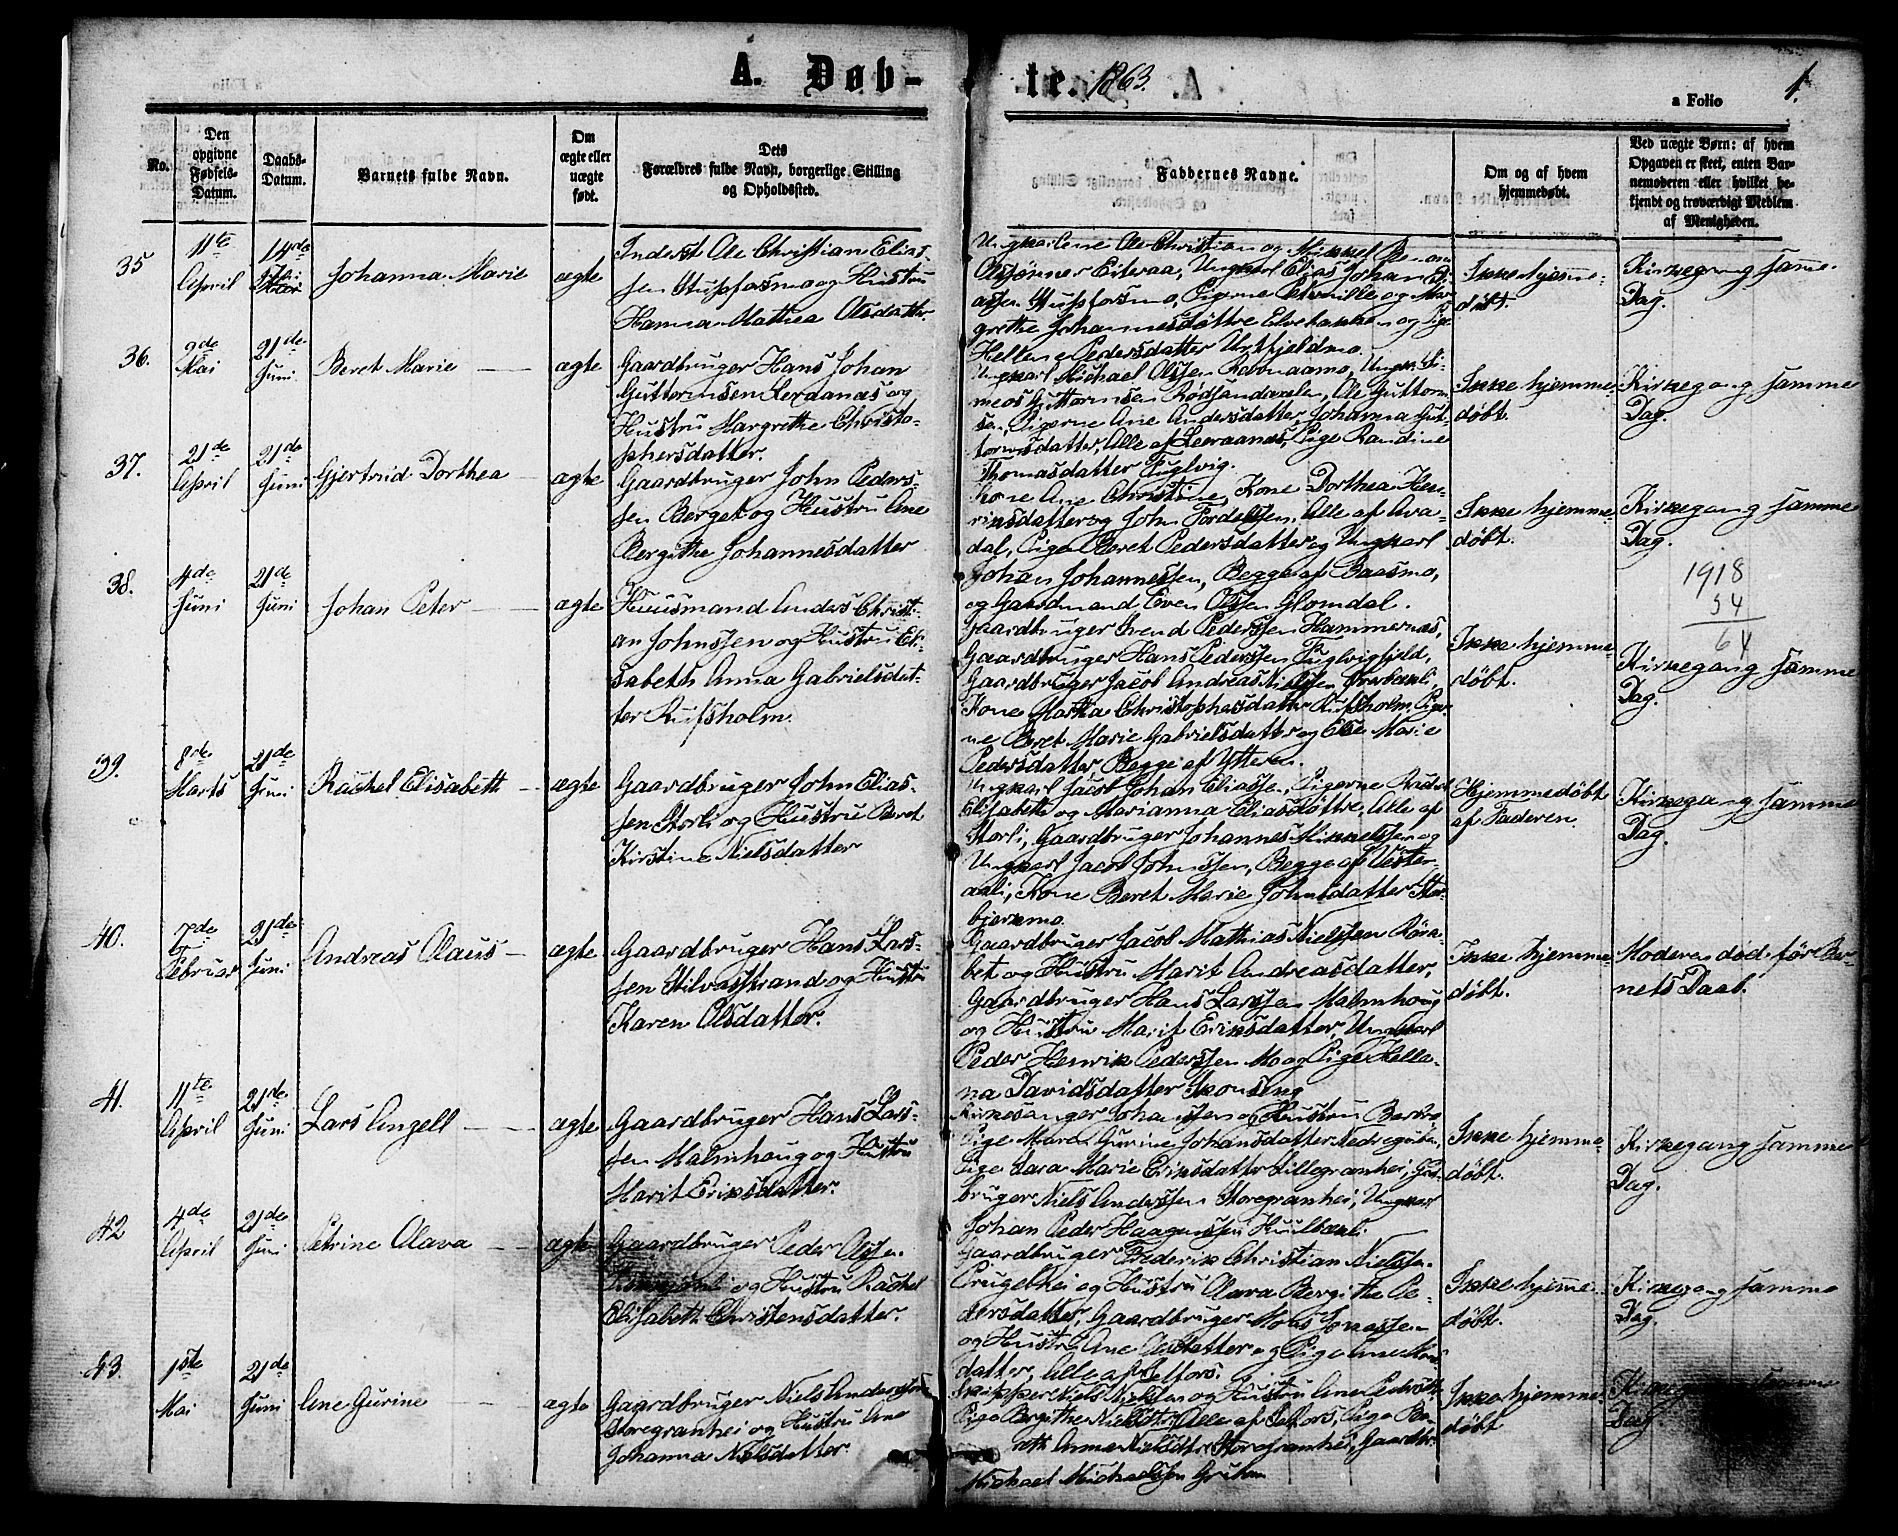 A. Døb-
te. 1863.
a Folio 1.
No.
Den
opgivne
Fødsels-
Datum.
Daabs-
Datum.
Barnets fulde Navn.
Om
ægte eller
uægte
født.
Dets
Forældres fulde Navn, borgerlige Stilling
og Opholdssted.
Faddernes Navne.
Om og af hvem
hjemmedøbt.
Ved uægte Børn: af hvem
Opgaven er skeet, enten Bar-
nemoderen eller hvilket be-
kjendt og troværdigt Medlem
af Menigheden.
35
11te
April
14de
Johanna Marie
ægte
Inderst Ole Christian Elias-
sen Stupforsmo og Hustru
Hanna Mathea Olsdatter.
Ungkarlene Ole Christian og Mikkel
Olsønner Eiteraa, Ungkarl Elias Johan El-
assen Stupforsmo, Pigerne Petronille og Mar-
grethe Johannesdøttre og Pige
Hellene Pedersdatter Urtfjeldmo.
Ikke hjemme-
døbt.
Kirkegang samme
Dag.
36.
9de
Mai
21de
Juni
Beret Marie
ægte
Gaardbruger Hans Johan
Guttormsen Lerdanæs og
Hustru Margrethe Christo-
phersdatter.
Ungkarl Michael Olssen Ravnaamo, Ungk. Si-
meos Guttormsen Rødsandaalen, Ole Guttorm-
sen, Pigerne Ane Andersdatter, Johanna Gut-
tormsdatter, Alle af Leeraanæs, Pige Randine
Thomasdatter Fuglvig.
Ikke hjemme-
døbt.
Kirkegang samme
Dag.
37.
21de
April
21de
Juni
Gjertrud Dorthea
ægte
Gaardbruger John Peders-
sen Berget og Hustru Ane
Bergithe Johannesdatter
Kone Ane Christine, Kone Dorthea Hen-
riksdatter og John Fordelssen, Alle af Ava-
dal, Pige Beret Pedersdatter og Ungkarl
Johan Johannessen, Begge af Baasmo,
og Gaardmand Even Olssen Glomdal.
Ikke hjemme-
døbt.
Kirkegang samme
Dag.
1918
54
64
38.
4de
Juni
21de
Juni
Johan Peter
ægte
Huusmand Anders Christi-
an Johnssen og Hustru Eli-
sabeth Anna Gabrielsdat-
ter Rufsholm.
Gaardbruger Svend Pederssen Hammernæs,
Gaardbruger Hans Pederssen Fuglvigfjeld,
Gaardbruger Jacob Andreas Nielssen
Kone Martha Christophersdatter Rufsholm, Piger-
ne Beret Marie Gabrielsdatter og Else Marie
Pedersdatter Begge af Ytteren.
Ikke hjemme-
døbt.
Kirkegang samme
Dag.
39.
8de
Marts
21de
Juni
Rachel Elisabeth
ægte
Gaardbruger John Elias-
sen Storli og Hustru Beret
Kirstine Nielsdatter
Ungkarl Jacob Johan Eliassen, Pigerne Rachel
Elisabeth og Marianna Eliasdøttre, Alle af
Storli, Gaardbruger Johannes Mikkelssen og
Ungkarl Jacob Johnssen, Begge af Vester-
aali, Kone Beret Marie Johnsdatter Stor-
bjerkmo.
Hjemmedøbt
af Faderen.
Kirkegang samme
Dag.
40.
7de
Februar
21de
Juni
Andreas Olaus
ægte
Gaardbruger Hans Lars-
sen Stilvasstrand og Hustru
Karen Olsdatter.
Gaardbruger Jacob Mathias Nielssen Røva-
bet og Hustru Marit Andreasdatter,
Gaardbruger Hans Larssen Malmhoug
og Hustru Marit Eriksdatter, Ungkarl
Peder Henrik Pederssen Mo og Pige Helle-
na Davidsdatter Skonseng
Ikke hjemme-
døbt.
Moderen død før Bar-
nets Daab.
41.
11te
April
21de
Juni
Lars Angell
ægte
Gaardbruger Hans Lars-
sen Malmhoug og Hustru
Marit Eriksdatter.
Kirkesanger Johanssen og Hustru Barbra,
Pige Maren Gurine Johansdatter
Pige Sara Marie Eriksdatter Lillegranhei, Gaard-
bruger Niels Anderssen Storegranhei, Ungkarl
Johan Peder Haagenssen
Ikke hjemme-
døbt.
Kirkegang samme
Dag.
42
4de
April
21de
Juni
Petrine Olava
ægte
Gaardbruger Peder Olssen
og Hustru Rachel
Elisabeth Christensdatter.
Gaardbruger Frederik Christian Nielssen
Prugelhei og Hustru Olava Bergithe Pe-
dersdatter, Gaardbruger Mons Jonassen
og Hustru Ane Olsdatter og Pige Ane Mons-
datter, Alle af Selfors.
Ikke hjemme-
døbt.
Kirkegang samme
Dag.
43.
1ste
Mai
21de
Juni
Ane Gurine
ægte
Gaardbruger Niels Anderssen
Storegranhei og Hustru Ane
Johanna Nielsdatter.
Skipper Niels Nielssen og Hustru Ane Pedersdtr.
Pige Bergithe Nielsdtr. Alle af Selfors, Pige Be-
reth Anna Nielsdtr. Storegranhei, Gaardbr.
Michael Michaelssen Gruben
Ikke hjemme-
døbt
Kirkegang samme
Dag